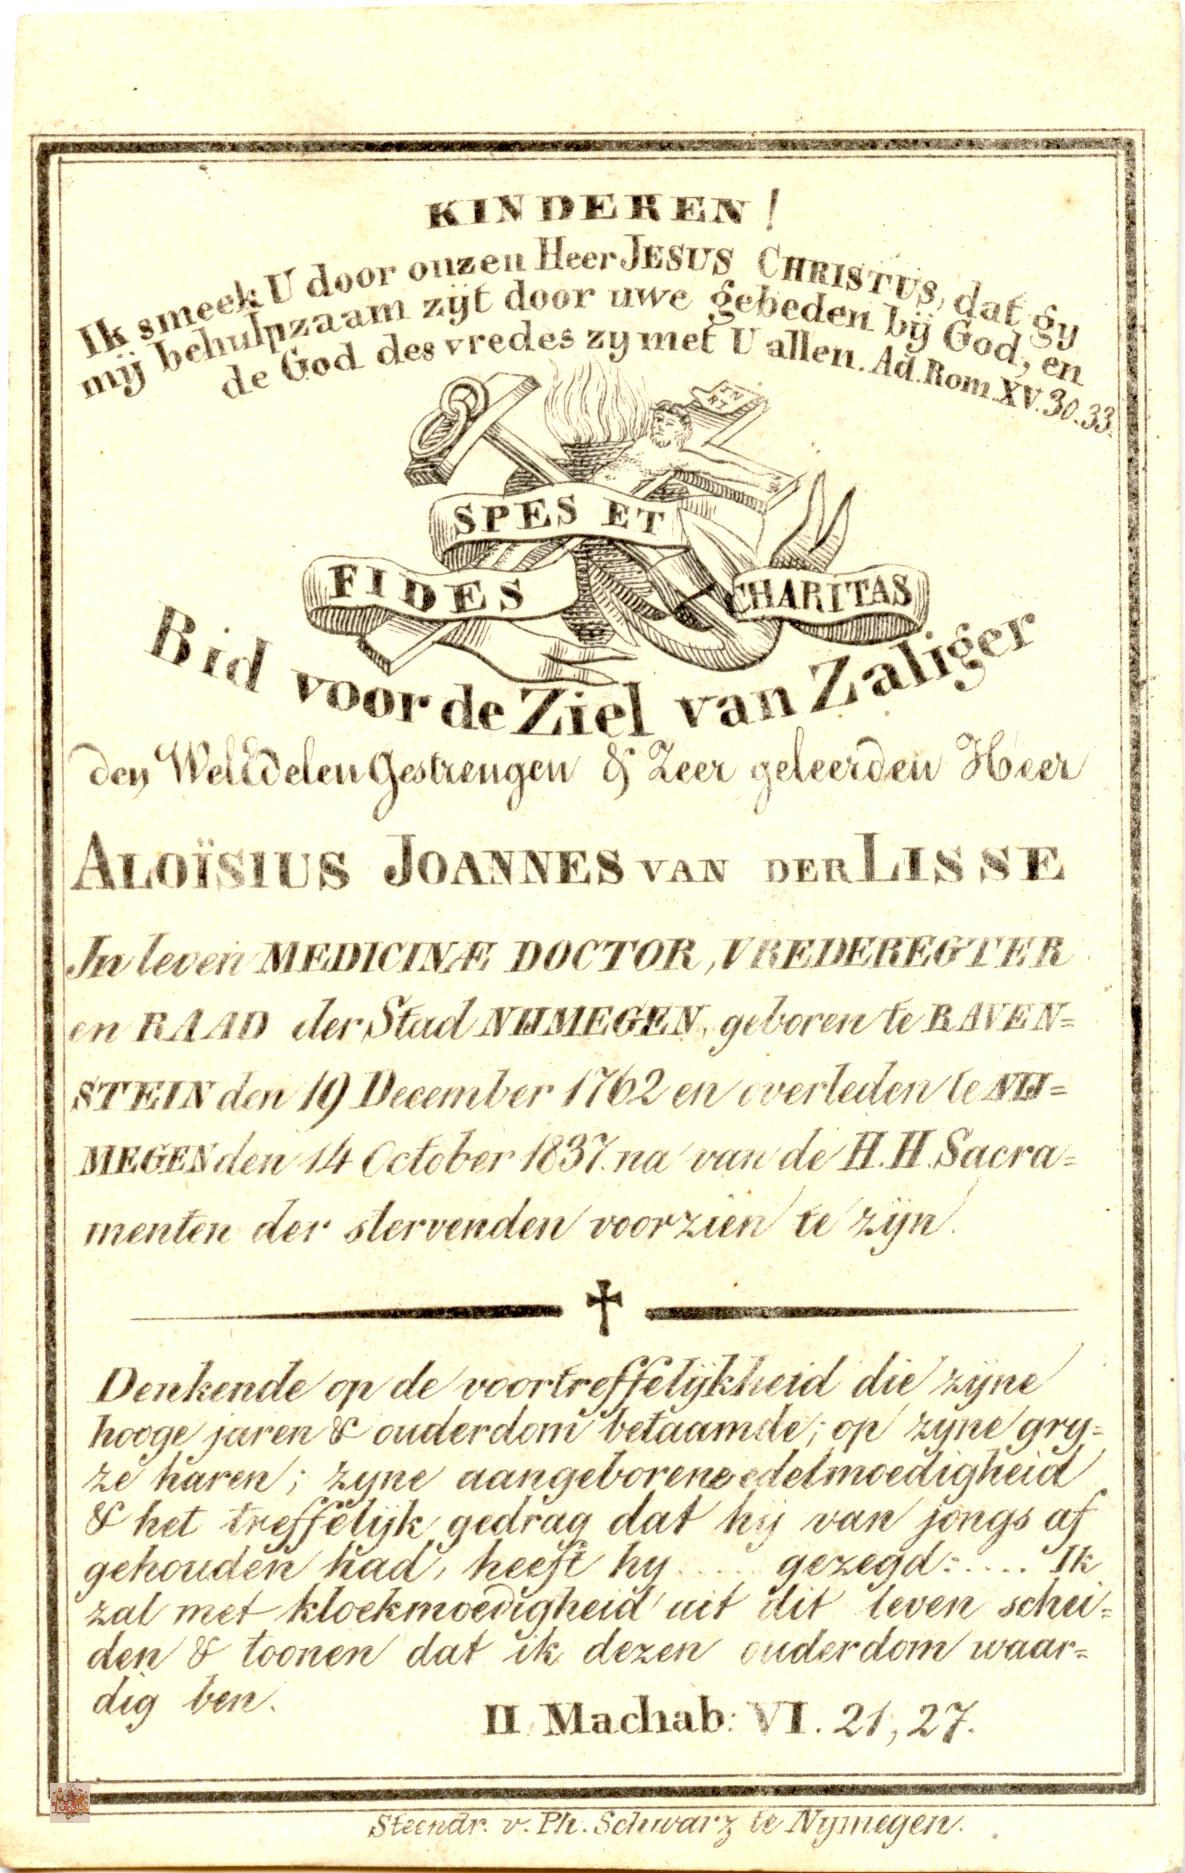 KINDEREN!
Ik smeek U door onzen Heer JESUS CHRISTUS, dat gy
mij behulpzaam zijt door uwe gebeden bij God, en
de God des vredes zy met U allen. Ad. Rom. XV. 30. 33.
IN
RI
SPES ET
FIDES
CHARITAS
Bid voor de Ziel van Zaliger
den WelEdelen Gestrengen & Zeer geleerden Heer
ALOÏSIUS JOANNES VAN DER LISSE
In leven MEDICINÆ DOCTOR, VREDEREGTER
en RAAD der Stad NIJMEGEN, geboren te RAVEN=
STEIN den 19 December 1762 en overleden te NIJ=
MEGEN den 14 October 1837. na van de H.H. Sacra=
menten der stervenden voorzien te zijn.
Denkende op de voortreffelijkheid die zijne
hooge jaren & ouderdom betaamde; op zyne gry=
ze haren; zyne aangeborene edelmoedigheid
& het treffelijk gedrag dat hij van jongs af
gehouden had, heeft hy .... gezegd: .... Ik
zal met kloekmoedigheid uit dit leven schei=
den & toonen dat ik dezen ouderdom waar=
dig ben.
II Machab: VI. 21, 27.
Steendr. v. Ph. Schwarz te Nymegen.